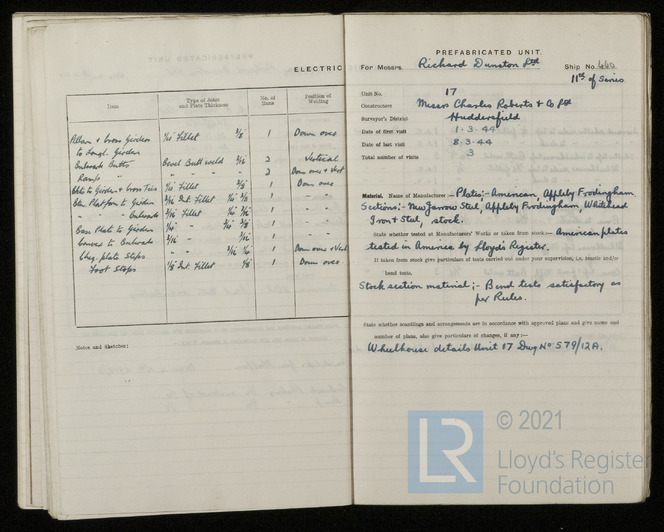 ELECTRIC
Item
Type of Joint and Plate Thickness
No. of Runs
Position of Welding
Pillars & Cross Girders 3/16 Fillet 3/8 1 Down over
to Longl. Girders
Bulwark Butts Bevel Butt weld 3/16 2 Vertical
Ramp " " " " 2 Down over & Vert
to Girder & Cross Ties Fillet 1 Down over
Platform to Girder 3/16 Int. Fillet 1 " "
" " Bulwark 3/16 Fillet 1 " "
Base Plate to Girders " 1 " "
to Bulwark 3/16 " 1 " "
Cheq. plate Steps " " 1 Down over & Vert
Foot Stops 1/8 Int. Fillet 1 Down over
Notes and Sketches:
PREFABRICATED UNIT.
For Messrs. Richard Dunston Ltd Ship No. 440
11th of Series
Unit No. 17
Constructors Messrs Charles Roberts & Co Ltd
Surveyor's District Huddersfield
Date of first visit 1.3.44
Date of last visit 8.3.44
Total number of visits 3
Material. Name of Manufacturer:- Plates:- American, Appleby Frodingham
Sections:- New Jarrow Steel, Appleby Frodingham, Whitehead
Iron & Steel, stock.
State whether tested at Manufacturers' Works or taken from stock:- American plates
tested in America by Lloyd's Register.
If taken from stock give particulars of tests carried out under your supervision, i.e. tensile and/or
bend tests.
Stock section material;- Bend tests satisfactory as
per Rules.
State whether scantlings and arrangements are in accordance with approved plans and give name and
number of plans, also give particulars of changes, if any:-
Wheelhouse details Unit 17 Dwg No 579/12A.
© 2021
LR
Lloyd's Register
Foundation